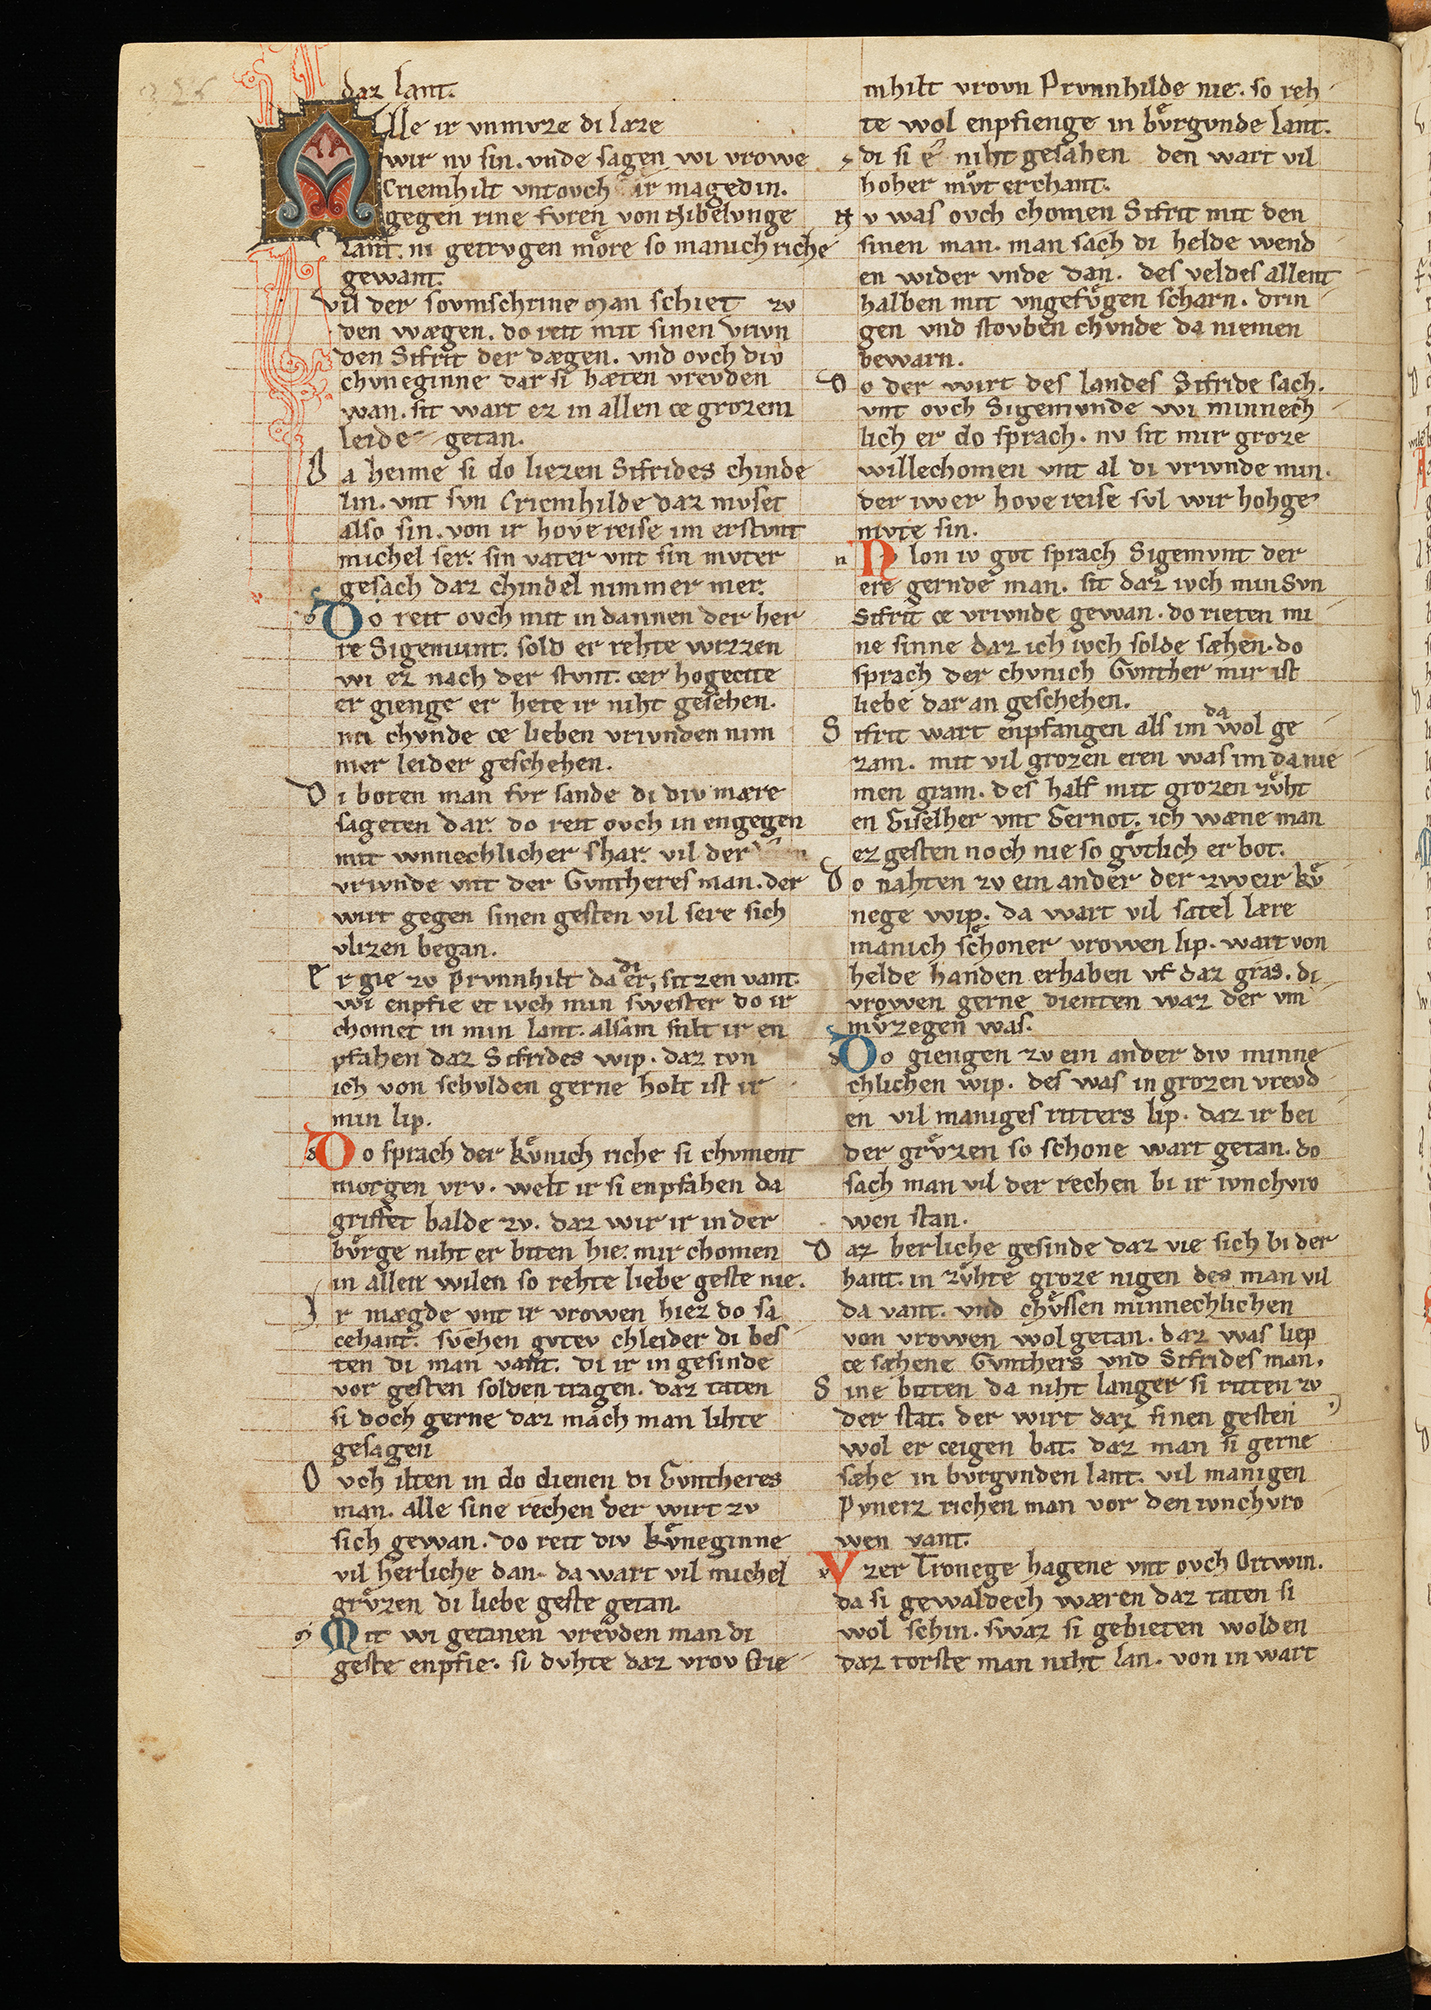 daz lant.
Alle ir vnmvze di læze
wir nv sin. vnde sagen wi vrowe
Criemhilt vnt ovch ir magedin.
gegen rine fvren von Nibelvnge
lant. ni getrvgen more so manich riche
gewant.
Vil der sovmschrine man schiet zv
den wægen. do reit mit sinen vrivn
den Sifrit der dægen. vnd ovch div
chvneginne dar si hæten vrevden
wan. sit wart ez in allen ce grozem
leide getan.
Da heime si do liezen Sifrides chinde
lin. vnt svn Criemhilde daz mvset
also sin. von ir hove reise im erstvnt
michel ser. sin vater vnt sin mvter
gesach daz chindel nimmer mer.
Do reit ovch mit in dannen der her
re Sigemunt. sold er rehte wizzen
wi ez nach der stvnt. cer hogecite
er gienge er hete ir niht gesehen.
im chvnde ce lieben vrivnden nim
mer leider geschehen.
Di boten man fvr sande di div mære
sageten dar. do reit ovch in engegen
mit wnnechlicher shar. vil der
vrivnde vnt der Gvntheres man. der
wirt gegen sinen gesten vil sere sich
vlizen began.
Er gie zv Prvnnhilt da di er, sitzen vant.
wi enpfie et iwch min swester do ir
chomet in min lant. alsam svlt ir en
pfahen daz Sifrides wip. daz tvn
ich von schvlden gerne holt ist ir
min lip.
Do sprach der kvͤnich riche si chvment
morgen vrv. welt ir si enpfahen da
griffet balde zv. daz wir ir in der
bvͤrge niht er biten hie. mir chomen
in allen wilen so rehte liebe geste nie.
Ir mægde vnt ir vrowen hiez do sa
cehant. svͤchen gvtev chleider di bes
ten di man vant. di ir in gesinde
vor gesten solden tragen. daz taten
si doch gerne daz mach man lihte
gesagen
Ovch ilten in do dienen di Gvntheres
man. alle sine rechen der wirt zv
sich gewan. do reit div kvͤneginne
vil herliche dan. da wart vil michel
grvͤzen di liebe geste getan.
Mit wi getanen vrevden man di
geste enpfie. si dvhte daz vrov Crie
mhilt vrovn Prvnnhilde nie. so reh
te wol enpfienge in bvͤrgvnde lant.
di si e niht gesahen den wart vil
hoher mvͦt erchant.
Nv was ovch chomen Sifrit mit den
sinen man. man sach di helde wend
en wider vnde dan. des veldes allent
halben mit vngefvͤgen scharn. drin
gen vnd stovben chvnde da niemen
bewarn.
Do der wirt des landes Sifride sach.
vnt ovch Sigemvnde wi minnech
lich er do sprach. nv sit mir groze
willechomen vnt al di vrivnde min.
der iwer hove reise svl wir hohge
mvte sin.
Nv lon iv got sprach Sigemvnt der
ere gernde man. sit daz ivch min svn
Sifrit ce vrivnde gewan. do rieten mi
ne sinne daz ich ivch solde sæhen. do
sprach der chvnich Gvnther mir ist
liebe dar an geschehen.
Sifrit wart enpfangen als im da wol ge
zam. mit vil grozen eren was im da nie
men gram. des half mit grozen zvͤht
en Giselher vnt Gernot. ich wæne man
ez gesten noch nie so gvͤtlich er bot.
Do nahten zv ein ander der zweir kvͤ
nege wip. da wart vil satel lære
manich schoͤner vrowen lip. wart von
helde handen erhaben vf daz gras. di
vrowen gerne dienten waz der vn
mvͤzegen was.
Do giengen zv ein ander div minne
chlichen wip. des was in grozen vrevd
en vil maniges ritters lip. daz ir bei
der grvͤzen so schone wart getan. do
sach man vil der rechen bi ir ivnchvro
wen stan.
Daz herliche gesinde daz vie sich bi der
hant. in zvͤhte groze nigen des man vil
da vant. vnd chvͤssen minnechlichen
von vrowen wol getan. daz was liep
ce sæhene Gvnthers vnd Sifrides man.
Sine biten da niht langer si riten zv
der stat. der wirt daz sinen gesten
wol er ceigen bat. daz man si gerne
sæhe in bvrgvnden lant. vil manigen
Pvneiz richen man vor den ivnchvro
wen vant.
Vzer Tronege hagene vnt ovch Ortwin.
da si gewaldech wæren daz taten si
wol schin. swaz si gebieten wolden
daz torste man niht lan. von in wart